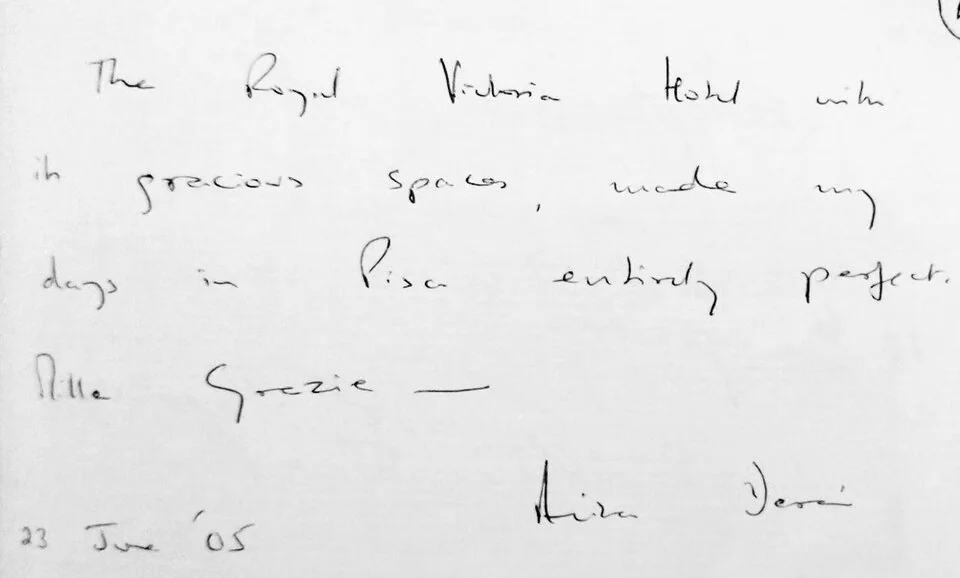 The Royal Victoria Hotel with
its gracious spaces, made my
days in Pisa entirely perfect.
Mille Grazie —
23 June '05